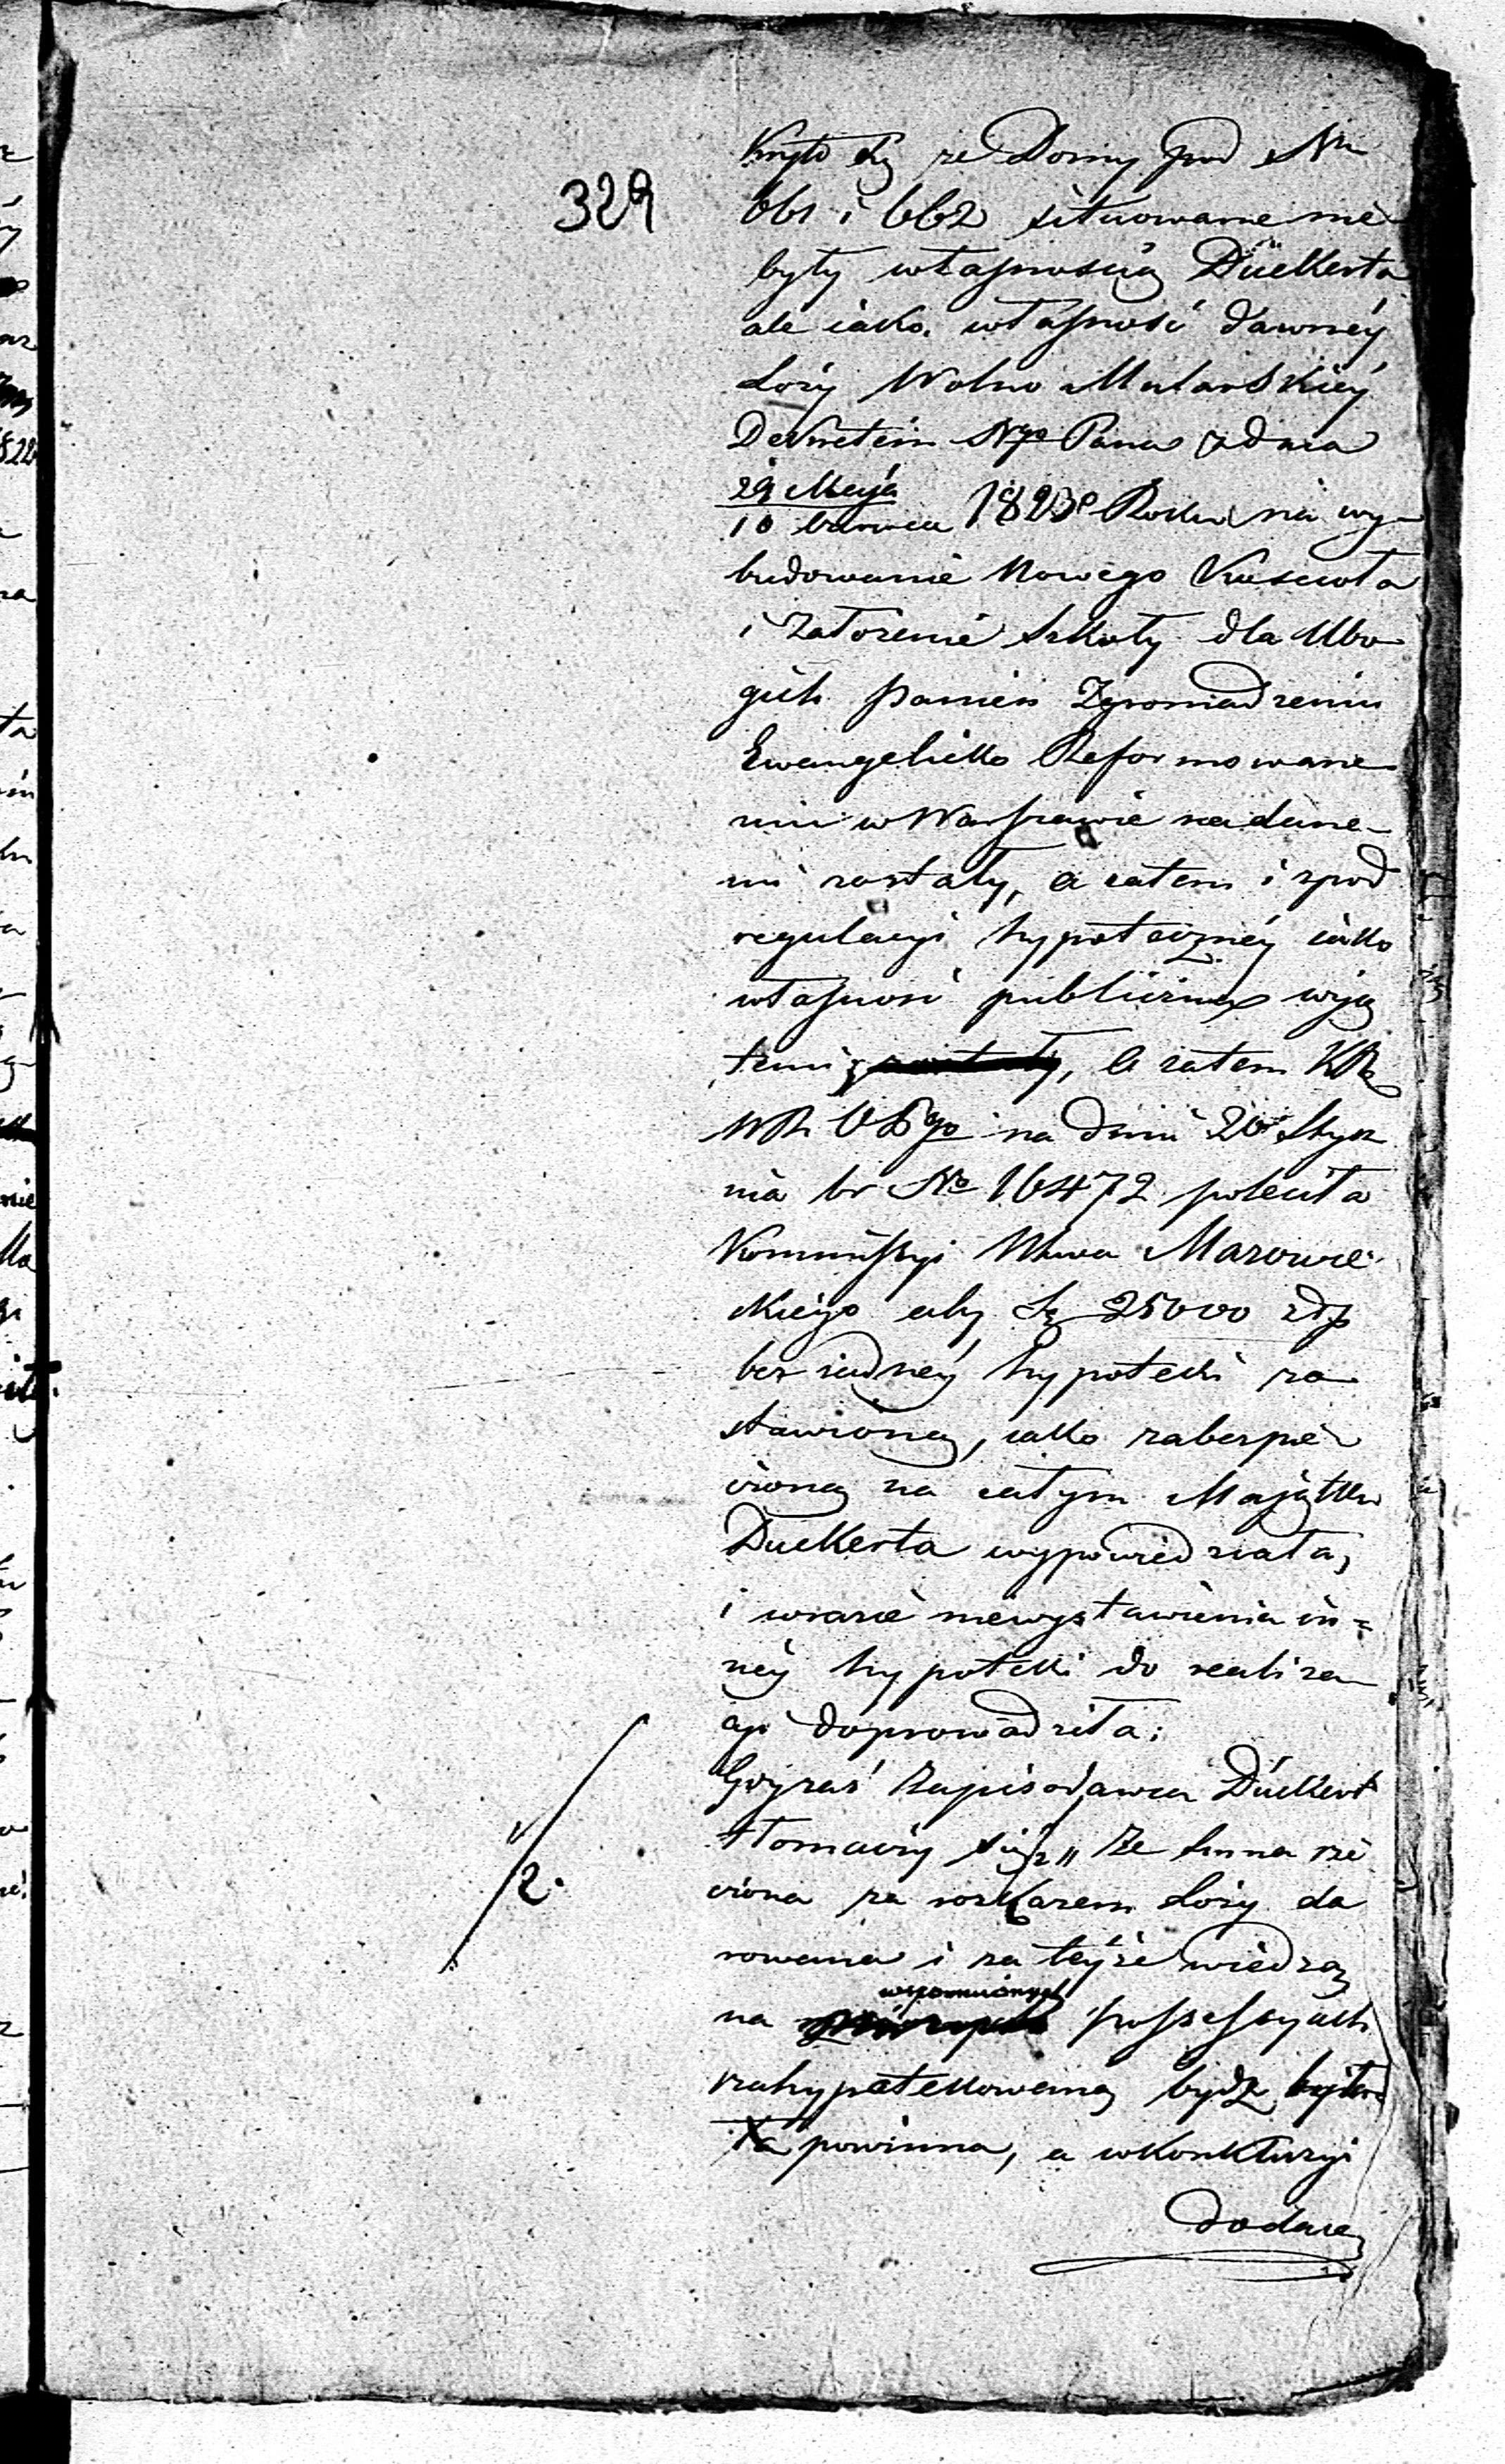 329
kryło się że Domy pod Nm
661 i 662 situowane nie
były własnością Dückerta
ale iako własność dawney
Loży Wolno Mularskiey
Dekretem Nygo Pana z dnia
29 Maja
10 Czerwca 1823 Roku na wy-
budowanie Nowego Kościoła
i założenie szkoły dla Ubo-
gich Panien Zgromadzeniu
Ewangelicko Reformowane-
mu w Warszawie nadane-
mi zostały, a zatem i zpod
regulacyi hypoteczney iako
własność publiczna wyię
temi, a zatem KR
WR OPgo na dniu 20 Stycz
nia br No 16472 poleciła
Kommissyi Wwa Mazowie
ckiego aby Sę 25000 złp
bez żadney hypoteki zo
stawioną, iako zabezpie
czoną na całym Majątku
Duckerta wypowiedziała,
i wrazie niewystawienia in-
ney hypoteki do realiza
cyi doprowadziła;
Gdyżaś Zapisodawca Dückert
tłomaczy się „ że summa rze
2.
czona za rozkazem Loży da
rowana i za teyże wiedzą
wspomnionych
na possessyach
zahypotekowaną bydź
powinna, a w konkluzyi
dodaie